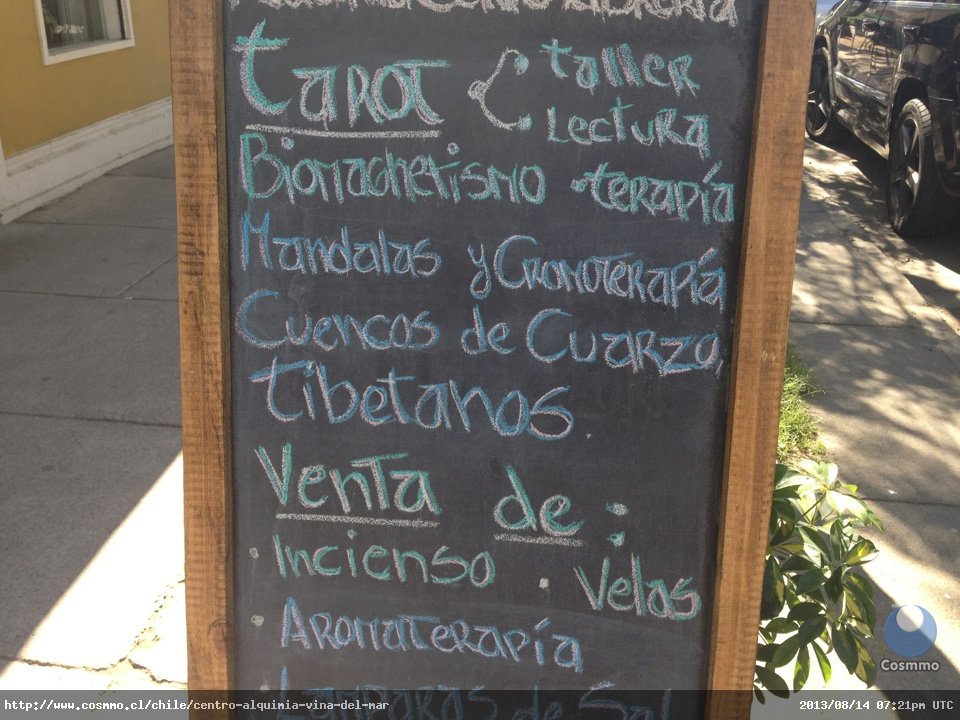 Tarot taller
Lectura
Biomagnetismo - terapía
Mandalas y Cromoterapía
Cuencos de Cuarzo,
Tibetanos.
Venta de:
· Incienso · Velas
· Aromaterapía
· Lamparas de Sal
Cosmmo
http://www.cosmmo.cl/chile/centro-alquimia-vina-del-mar 2013/08/14 07:21pm UTC